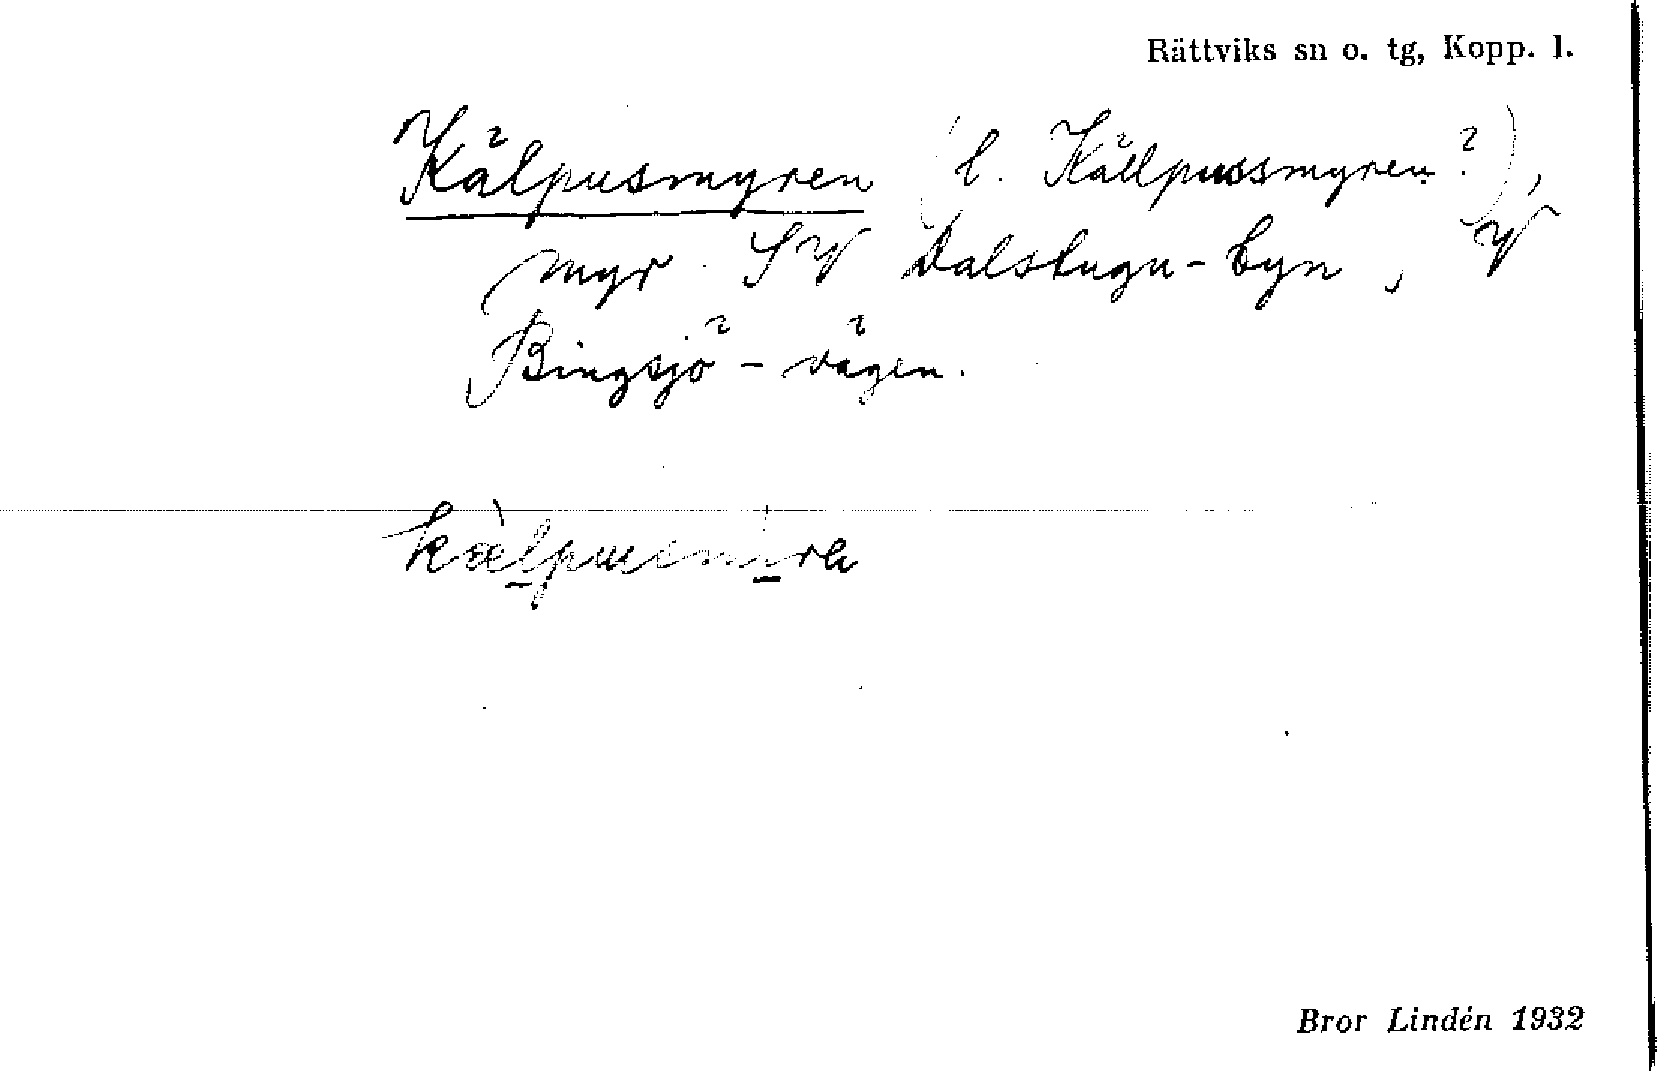 Rättviks sn o. tg, Kopp. l.
Kälpusmyren (l. Källpussmyren?),
myr SV Dalstuga-byn, V
Bingsjö-vägen.
Bror Lindén 1932